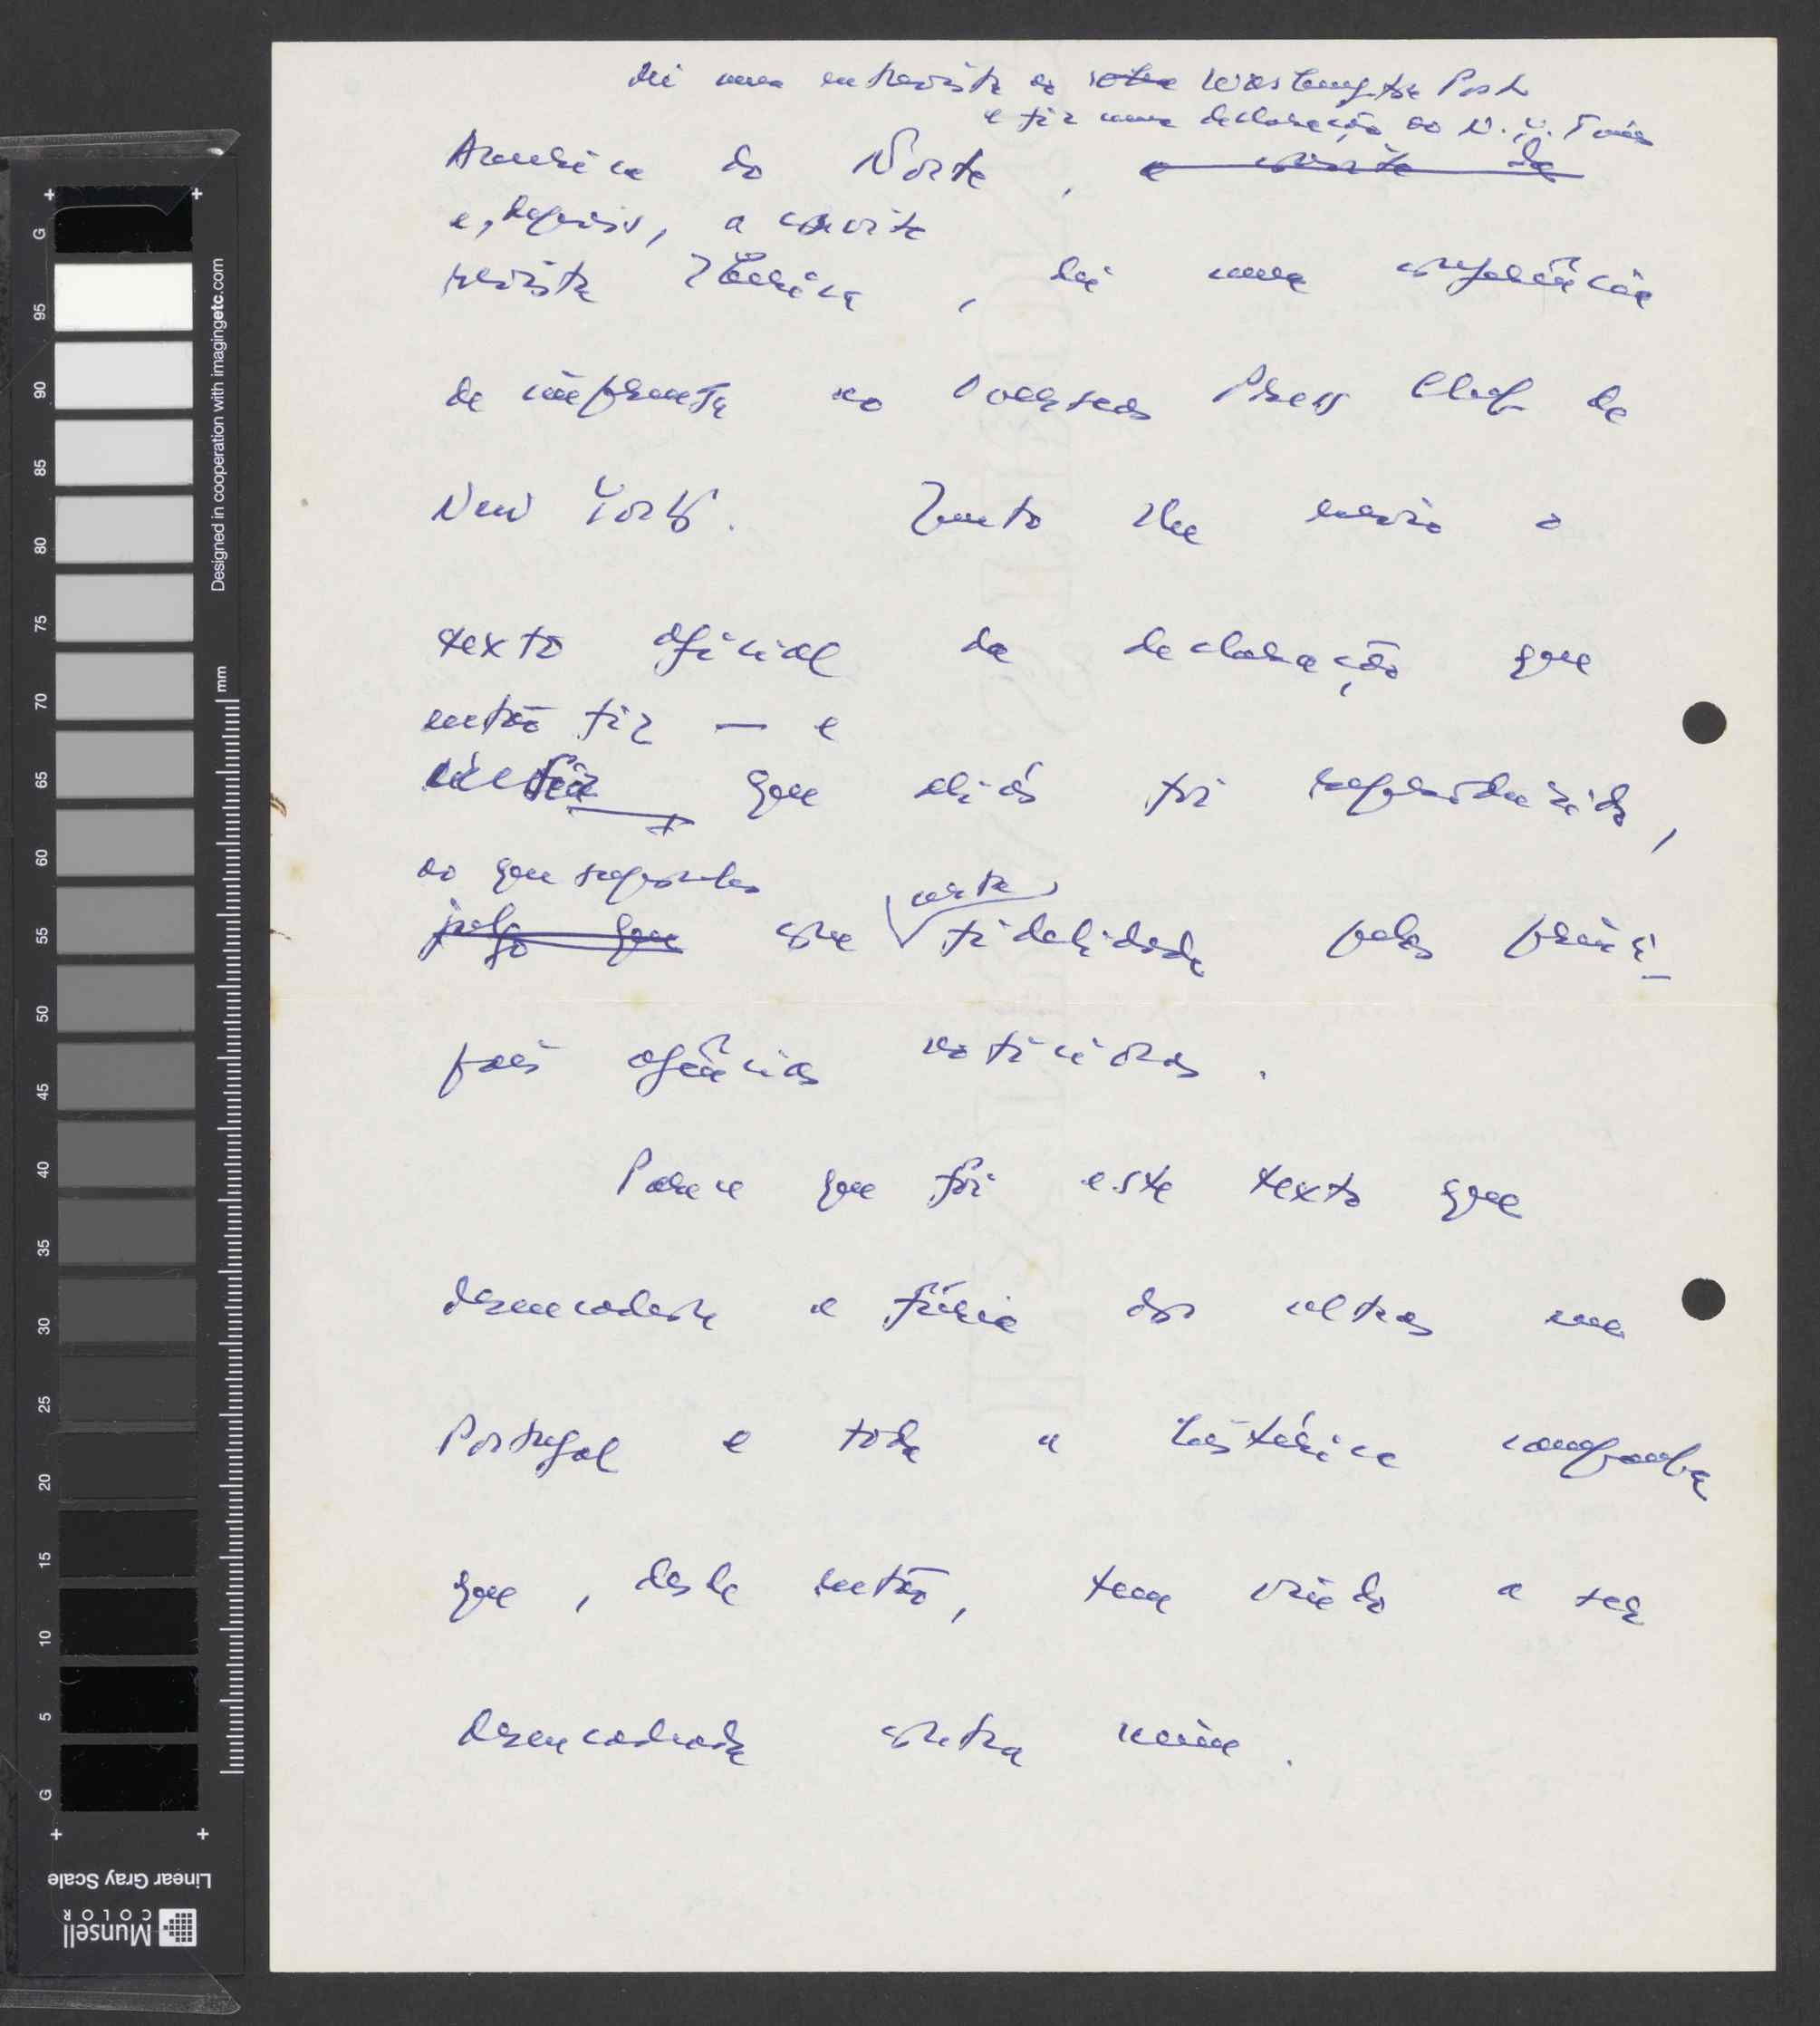 dei uma entrevista ao Washington Post
e fiz uma declaração ao N. Y. Times
America do Norte, a convite da
e, depois, a convite
revista Ibérica, dei uma conferência
de imprensa no Overseas Press Club de
New York. Junto lhe envio o
texto oficial da declaração que
então fiz — e
que aliás foi reproduzido,
ao que suponho
certa
julgo que com fidelidade pelas princi-
pais agências noticiosas.
Parece que foi este texto que
desencadeou a fúria dos ultras em
Portugal e toda a histérica campanha
que, desde então, tem vindo a ser
desencadeada contra mim.
Designed in cooperation with imagingetc.com
mm
G
95
90
85
80
75
70
65
60
55
50
45
40
35
30
25
20
15
10
5
G
Linear Gray Scale
Munsell
COLOR